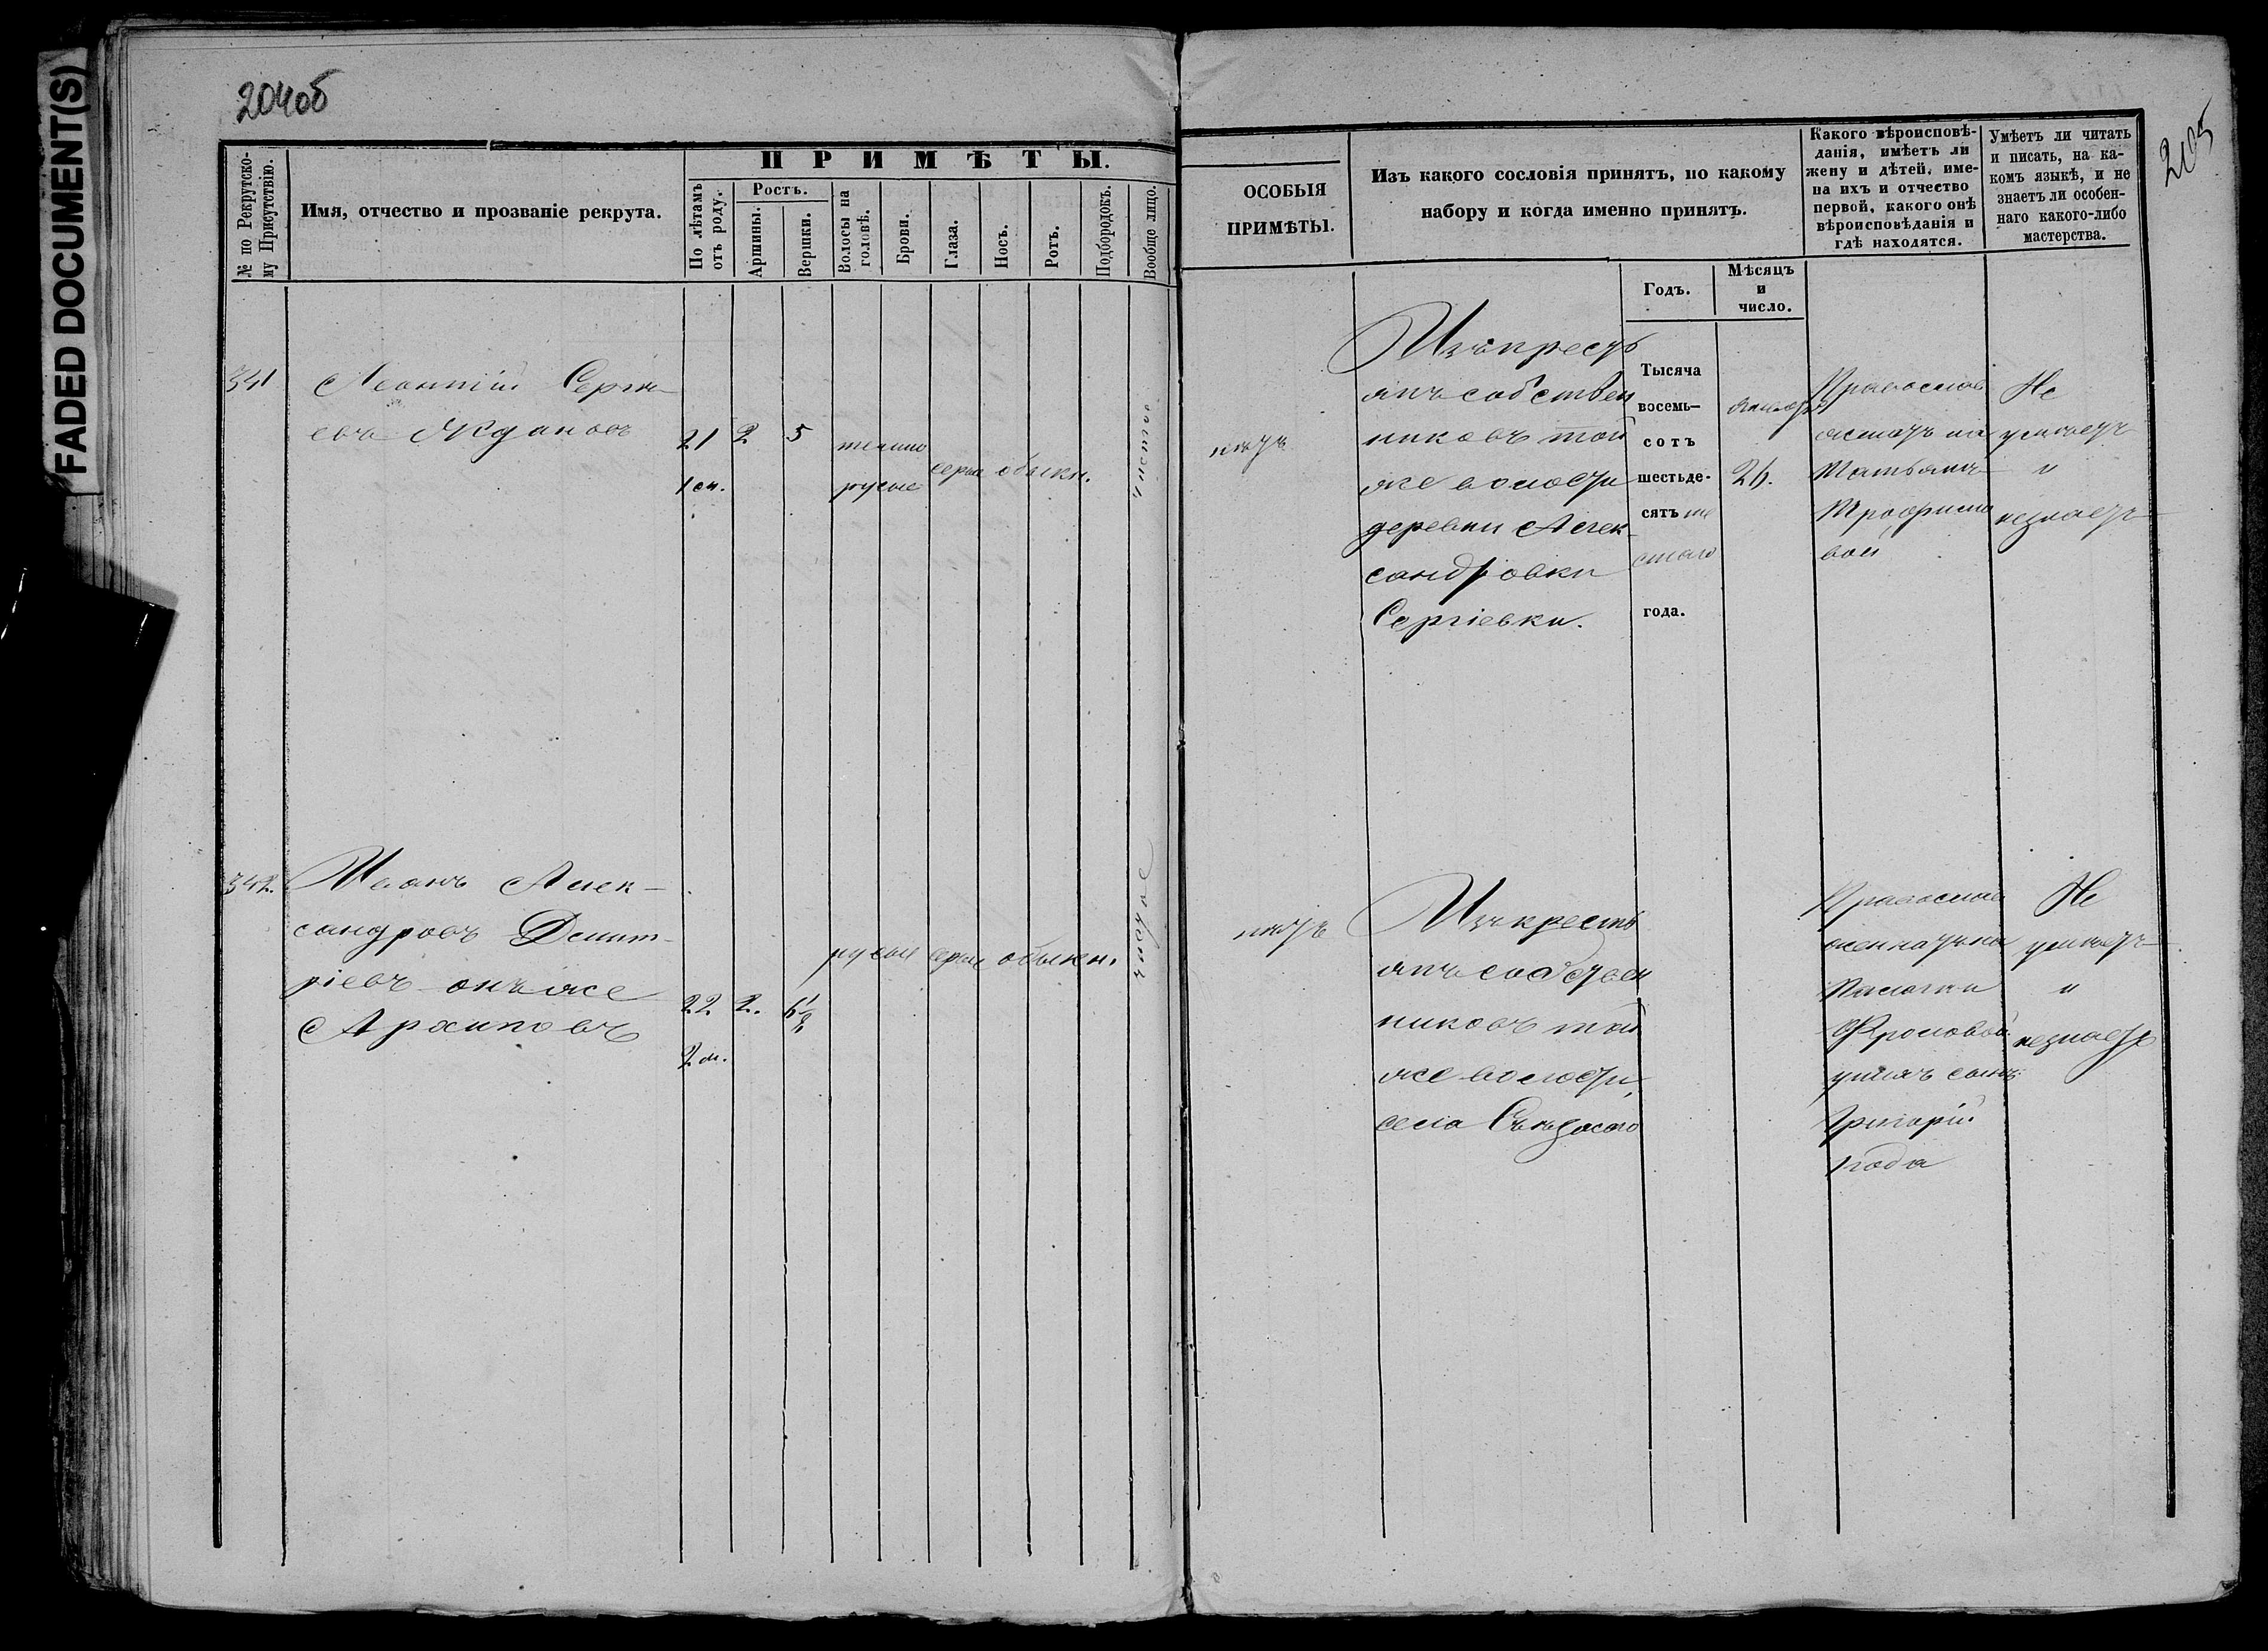 FADED DOCUMENT(S)
204об
205
№ по Рекрутско-
му Присутствію.
Имя, отчество и прозваніе рекрута.
ПРИМѢТЫ.
По лѣтамъ
отъ роду.
Ростъ.
Аршины.
Вершки.
Волосы на
головѣ.
Брови.
Глаза.
Носъ.
Ротъ.
Подбородокъ.
Вообще лицо.
ОСОБЫЯ
ПРИМѢТЫ.
Изъ какого сословія принятъ, по какому
набору и когда именно принятъ.
Годъ.
Мѣсяцъ
и
число.
Какого вѣроисповѣ-
данія, имѣетъ ли
жену и дѣтей, име-
на ихъ и отчество
первой, какого онѣ
вѣроисповѣданія и
гдѣ находятся.
Умѣетъ ли читать
и писать, на ка-
комъ языкѣ, и не
знаетъ ли особен-
наго какого-либо
мастерства.
341
Леонтій Сергѣ-
евъ Ждановъ
21
2
5
темно
русые
серые
обыкн.
чистое
нѣтъ
Изъ крестъ
янъ собствен
никовъ той
же волости
деревни Алек-
сандровки
Сергіевки.
Тысяча
восемь-
сотъ
шестьде-
сятъ ше
стого
года.
26.
Православ
женатъ на
Татьянѣ
Трофимо
вой
Не
умѣетъ
"
незнаетъ
342.
Иванъ Алек-
сандровъ Дмит-
ріевъ онъ же
Архиповъ
22
2 м.
2.
русые
серые
обыкн.
чистое
нѣтъ
Изъ кресть
янъ собствен
никовъ той
же волости,
села
Православ
женатъ на
Фроловой
у нихъ сынъ
Григорій
1 года
Не
умѣетъ
"
незнаетъ